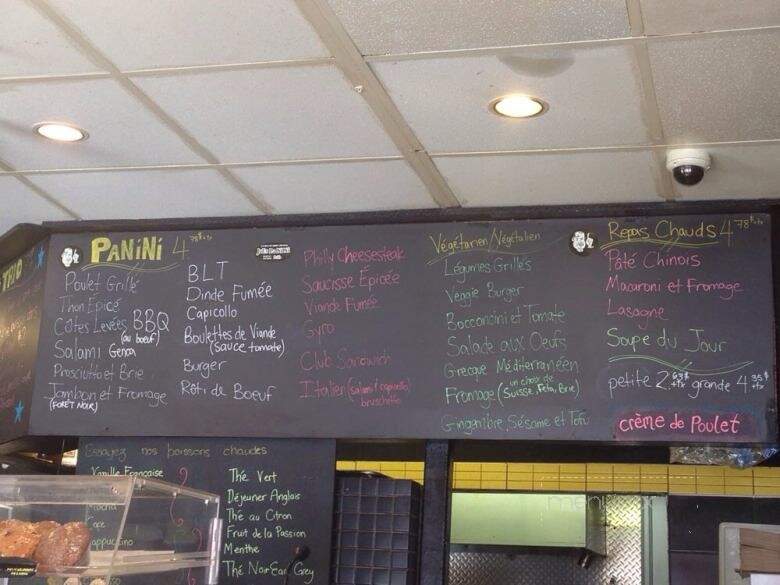 TRIO
PANiNi 4 78$+tx
Poulet Grillé
Thon Épicé
Côtes Levées BBQ
(au boeuf)
Salami Genoa
Prosciutto et Brie
Jambon et Fromage
(FORÊT NOIR)
BLT
Dinde Fumée
Capicollo
Boulettes de Viande
(Sauce tomate)
Burger
Rôti de Boeuf
Philly Cheesesteak
Saucisse Épicée
Viande Fumée
Gyro
Club Sandwich
Italien (Salami/capicollo)
bruschetta
Végétarien/Végétalien
Légumes Grillés
Veggie Burger
Bocconcini et Tomate
Salade aux Oeufs
Grecque Méditerranéen
Fromage (un choix de
Suisse, Feta, Brie)
Gingembre, Sésame et Tofu
Repas Chauds 4 78$+tx
Pâté Chinois
Macaroni et Fromage
Lasagne
Soupe du Jour
petite 2 63$+tx grande 4 35$+tx
crème de Poulet
Essayez nos boissons chaudes
Vanille Française
Mocha
Café
Cappuccino
Thé Vert
Déjeuner Anglais
Thé au Citron
Fruit de la Passion
Menthe
Thé Noir Earl Grey